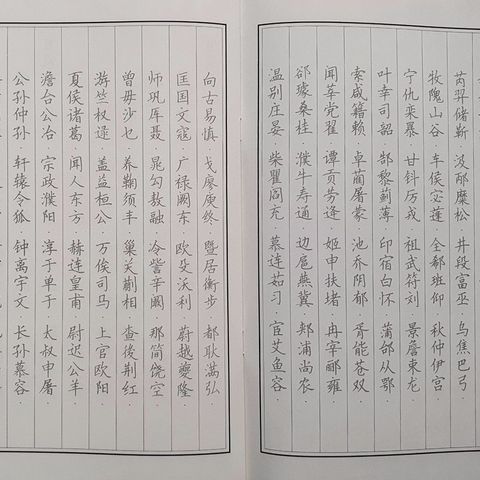 芮羿储靳·汲邴糜松·井段富巫·乌焦巴弓·
牧隗山谷·车侯宓蓬·全郗班仰·秋仲伊宫·
宁仇栾暴·甘钭厉戎·祖武符刘·景詹束龙·
叶幸司韶·郜黎蓟薄·印宿白怀·蒲邰从鄂·
索咸籍赖·卓蔺屠蒙·池乔阴郁·胥能苍双·
闻莘党翟·谭贡劳逄·姬申扶堵·冉宰郦雍·
郤璩桑桂·濮牛寿通·边扈燕冀·郏浦尚农·
温别庄晏·柴瞿阎充·慕连茹习·宦艾鱼容·
向古易慎·戈廖庾终·暨居衡步·都耿满弘·
匡国文寇·广禄阙东·欧殳沃利·蔚越夔隆·
师巩厍聂·晁勾敖融·冷訾辛阚·那简饶空·
曾毋沙乜·养鞠须丰·巢关蒯相·查後荆红·
游竺权逯·盖益桓公·万俟司马·上官欧阳·
夏侯诸葛·闻人东方·赫连皇甫·尉迟公羊·
澹台公冶·宗政濮阳·淳于单于·太叔申屠·
公孙仲孙·轩辕令狐·钟离宇文·长孙慕容·